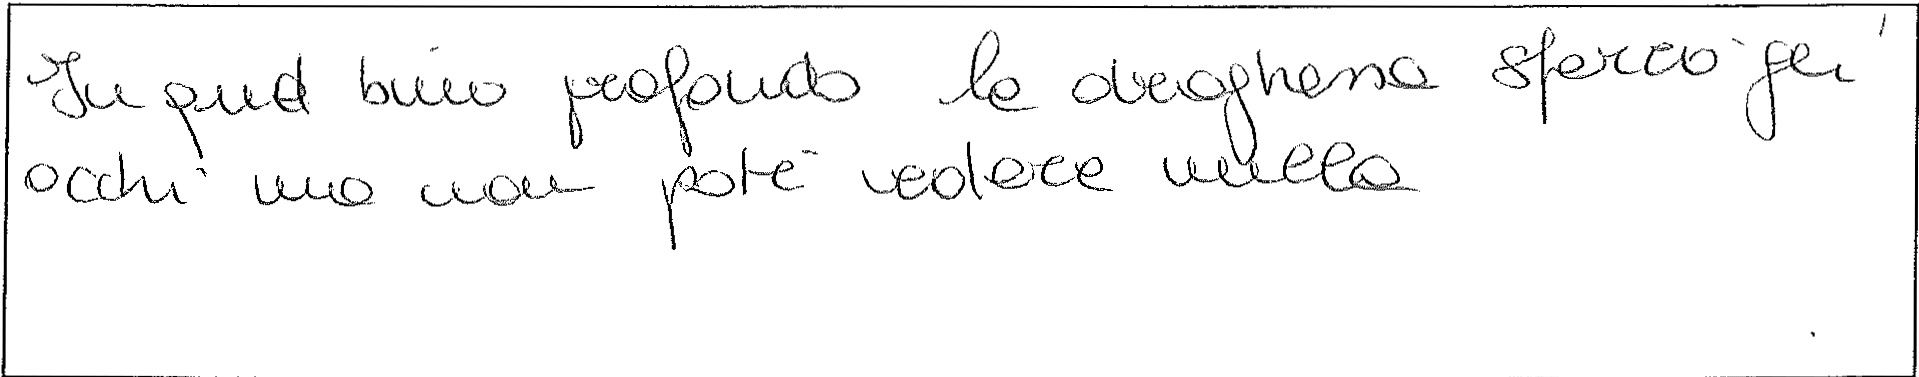 In quel buio profondo la draghessa sferrò gli
occhi ma non poté vedere nulla